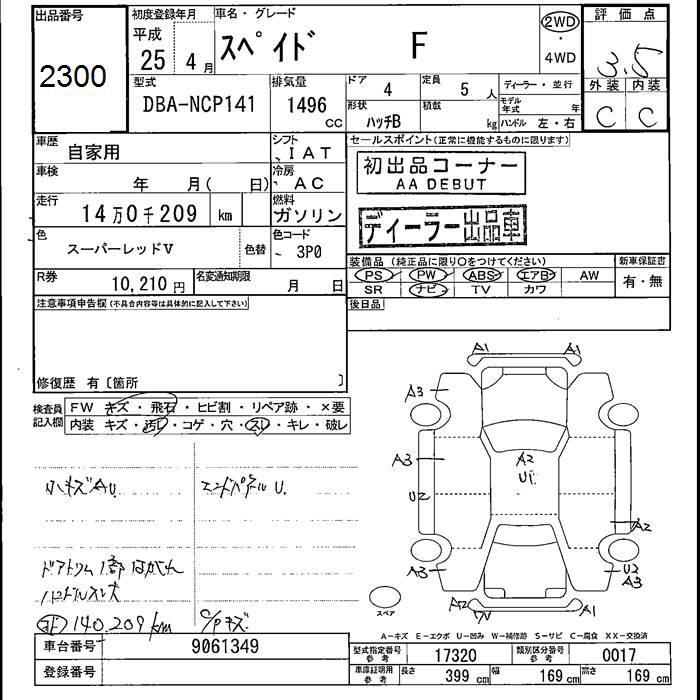 出品番号
2300
初度登録年月
平成
25 4月
車名・グレード
スペイド F
2WD
・
4WD
評価点
3.5
外装 内装
C C
型式
DBA-NCP141
排気量
1496 CC
ドア 4
定員 5人
ディーラー・並行
形状 ハッチB
積載 kg
モデル年式 年
ハンドル 左・右
車歴 自家用
シフト IAT
車検 年 月( 日)
冷房 AC
走行 14万0千209 km
燃料 ガソリン
色 スーパーレッドV
色替
色コード 3P0
R券 10,210円
名変通知期限 月 日
セールスポイント(正常に機能するものに限ります)
初出品コーナー
AA DEBUT
ディーラー出品車
装備品(純正品に限り○をつけてください)
新車保証書
PS PW ABS エアB AW
有・無
SR ナビ TV カワ
後日品
注意事項申告欄(不具合内容等は具体的に記入して下さい)
修復歴 有〔箇所 〕
検査員記入欄
FW キズ・飛石・ヒビ割・リペア跡・×要
内装 キズ・汚レ・コゲ・穴・スレ・キレ・破レ
小キズAU.
エンドパネルU.
ドアトリム1部はがれ
ハンドルスレ大
140,209km
C/Pキズ
A1 A1
A3
A3
A2
U1
U2
A2
A3
U2
A3
A2
A1
スペア
A-キズ E-エクボ U-凹み W-補修跡 S-サビ C-腐食 XX-交換済
車台番号 9061349
登録番号
型式指定番号 参考 17320
類別区分番号 参考 0017
車庫証明用 参考
長さ 399cm
幅 169cm
高さ 169cm